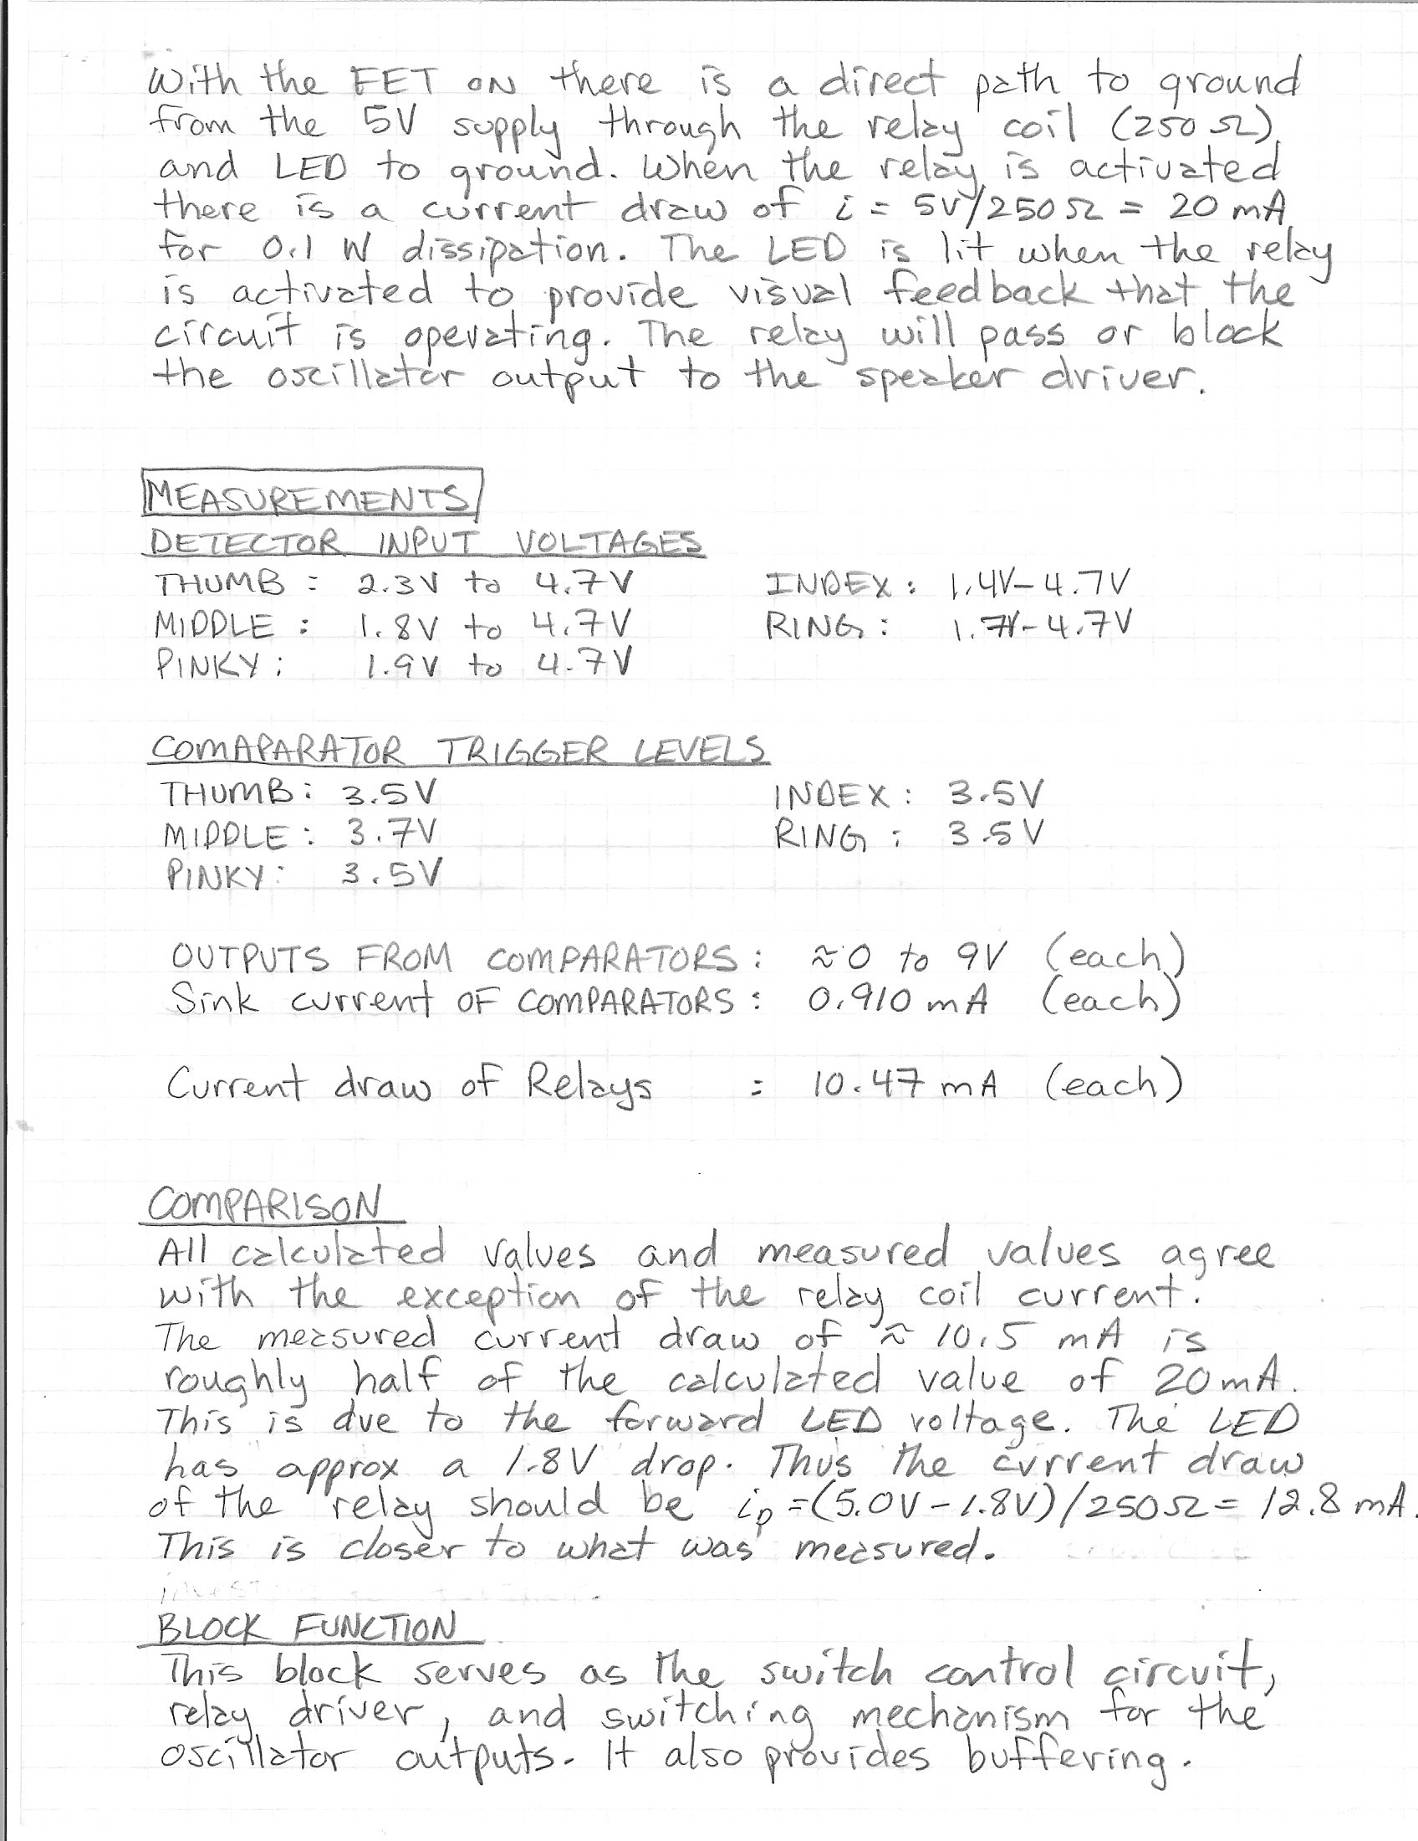 With the FET ON there is a direct path to ground
from the 5V supply through the relay coil (250Ω)
and LED to ground. When the relay is activated
there is a current draw of i = 5V/250Ω = 20 mA
for 0.1 W dissipation. The LED is lit when the relay
is activated to provide visual feedback that the
circuit is operating. The relay will pass or block
the oscillator output to the speaker driver.
MEASUREMENTS
DETECTOR INPUT VOLTAGES
THUMB: 2.3V to 4.7V INDEX: 1.4V-4.7V
MIDDLE: 1.8V to 4.7V RING: 1.7V-4.7V
PINKY: 1.9V to 4.7V
COMAPARATOR TRIGGER LEVELS
THUMB: 3.5V INDEX: 3.5V
MIDDLE: 3.7V RING: 3.5V
PINKY: 3.5V
OUTPUTS FROM COMPARATORS: ≈0 to 9V (each)
Sink current OF COMPARATORS: 0.910 mA (each)
Current draw of Relays = 10.47 mA (each)
COMPARISON
All calculated values and measured values agree
with the exception of the relay coil current.
The measured current draw of ≈ 10.5 mA is
roughly half of the calculated value of 20mA.
This is due to the forward LED voltage. The LED
has approx a 1.8V drop. Thus the current draw
of the relay should be i_D=(5.0V-1.8V)/250Ω = 12.8 mA.
This is closer to what was measured.
BLOCK FUNCTION
This block serves as the switch control circuit,
relay driver, and switching mechanism for the
oscillator outputs. It also provides buffering.